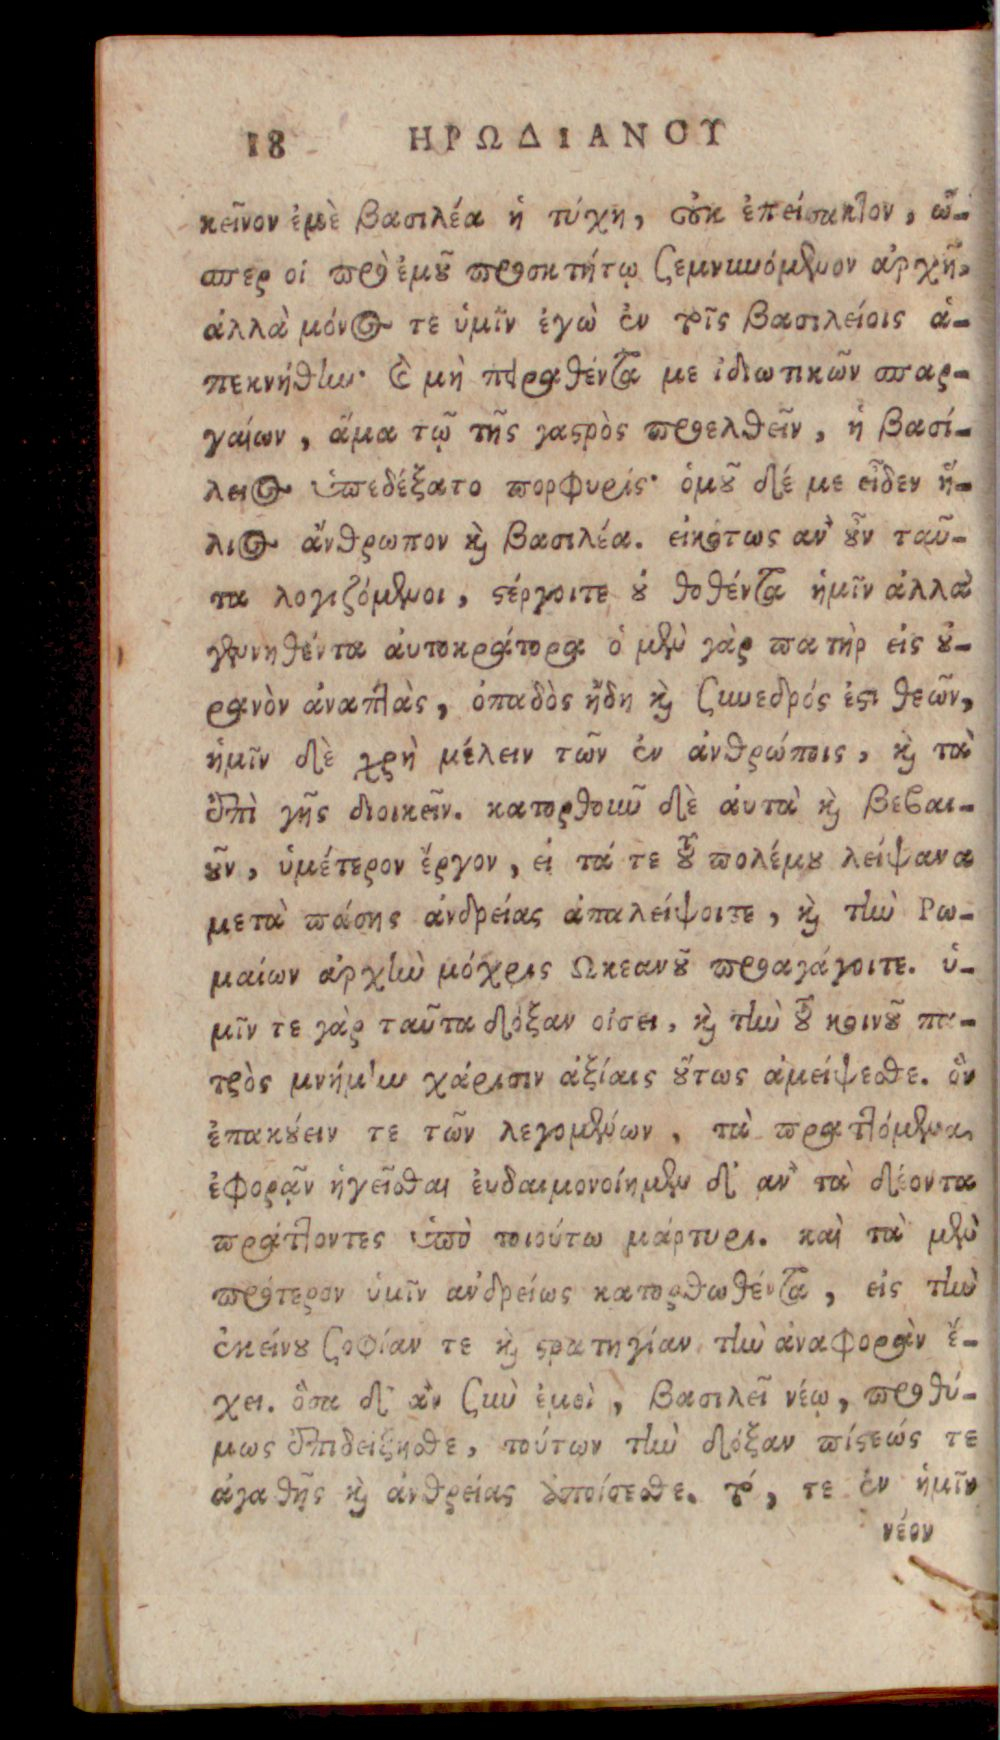 18 ΗΡΩΔΙΑΝΟΥ
κεῖνον ἐμὲ βασιλέα ἡ τύχη, οὐκ ἐπείσακτον, ὥ-
σπερ οἱ πρὸ ἐμοῦ προσκτήτῳ σεμνυνόμενον ἀρχῇ,
ἀλλὰ μόνος τε ὑμῖν ἐγὼ ἐν τοῖς βασιλείοις ἀ-
πεκυήθην· καὶ μὴ πειραθέντα με ἰδιωτικῶν σπαρ-
γάνων, ἅμα τῷ τῆς γαστρὸς προελθεῖν, ἡ βασί-
λειος ὑπεδέξατο πορφυρίς· ὁμοῦ δέ με εἶδεν ἥ-
λιος ἄνθρωπον καὶ βασιλέα. εἰκότως αν οὖν ταῦ-
τα λογιζόμενοι, στέργοιτε οὐ δοθέντα ἡμῖν ἀλλὰ
γεννηθέντα αὐτοκράτορα ὁ μὲν γὰρ πατὴρ εἰς οὐ-
ρανὸν ἀναπτὰς, ὀπαδὸς ἤδη καὶ συνεδρός ἐστι θεῶν,
ἡμῖν δὲ χρὴ μέλειν τῶν ἐν ἀνθρώποις, καὶ τὰ
ἐπὶ γῆς διοικεῖν. κατορθοῦν δὲ αὐτὰ καὶ βεβαι-
οῦν, ὑμέτερον ἔργον, εἰ τά τε τοῦ πολέμου λείψανα
μετὰ πάσης ἀνδρείας ἀπαλείψοιτε, καὶ τὴν Ρω-
μαίων ἀρχὴν μόχρις Ωκεανοῦ προαγάγοιτε. ὑ-
μῖν τε γὰρ ταῦτα δόξαν οἴσει, καὶ τὴν τοῦ κοινοῦ πα-
τρὸς μνήμην χάρισιν ἀξίαις οὕτως ἀμείψεσθε. ὃν
ἐπακούειν τε τῶν λεγομένων, τὰ πραττόμενα
ἐφορᾷν ἡγεῖσθαι εὐδαιμονοίημεν δ' αν τὰ δέοντα
πράττοντες ὑπὸ τοιούτω μάρτυρι. καὶ τὰ μὲν
πρότερον ὑμῖν ανδρείως κατορθωθέντα, εἰς τὴν
ἐκείνου σοφίαν τε καὶ στρατηγίαν τὴν ἀναφορὰν ἔ-
χει. ὅσα δ' ἂν σὺν ἐμοὶ, βασιλεῖ νέῳ, προθύ-
μως ἐπιδείξησθε, τούτων τὴν δόξαν πίστεώς τε
ἀγαθῆς καὶ ἀνθρείας ἀποίσεσθε. τό, τε ἐν ἡμῖν
νέον